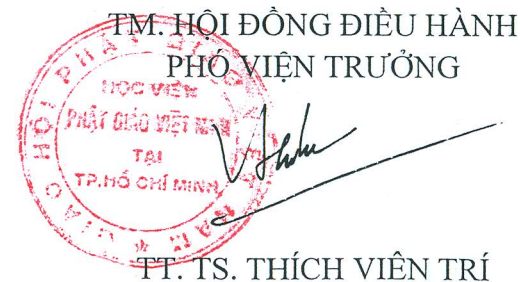 TM. HỘI ĐỒNG ĐIỀU HÀNH
PHÓ VIỆN TRƯỞNG
GIÁO HỘI PHẬT GIÁO
HỌC VIỆN
PHẬT GIÁO VIỆT NAM
TẠI
TP.HỒ CHÍ MINH
TT. TS. THÍCH VIÊN TRÍ